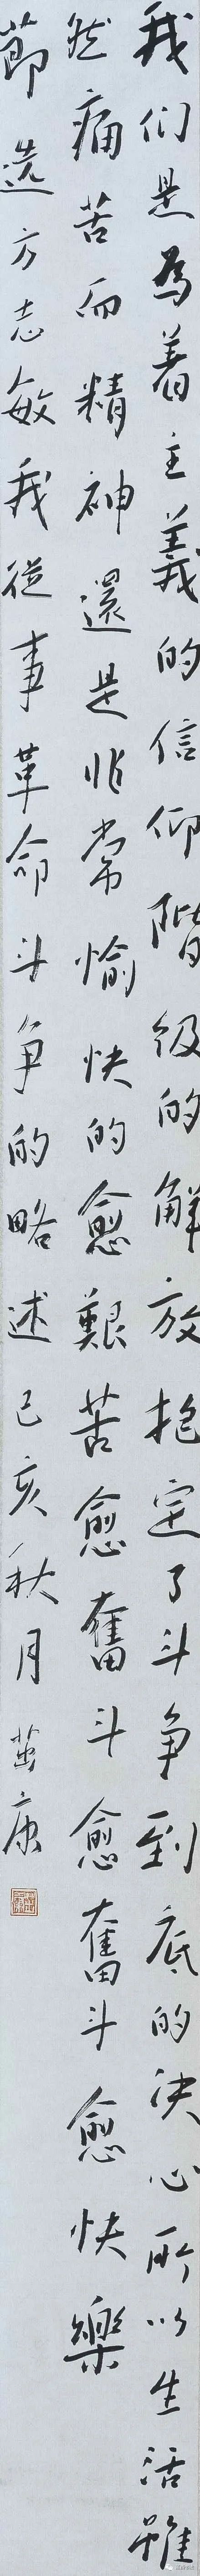 我们是為着主義的信仰階级的解放抱定了斗争到底的决心所以生活雖
然痛苦而精神還是非常愉快的愈艱苦愈奮斗愈奮斗愈快樂
節选方志敏我従事革命斗争的略述己亥秋月茁康